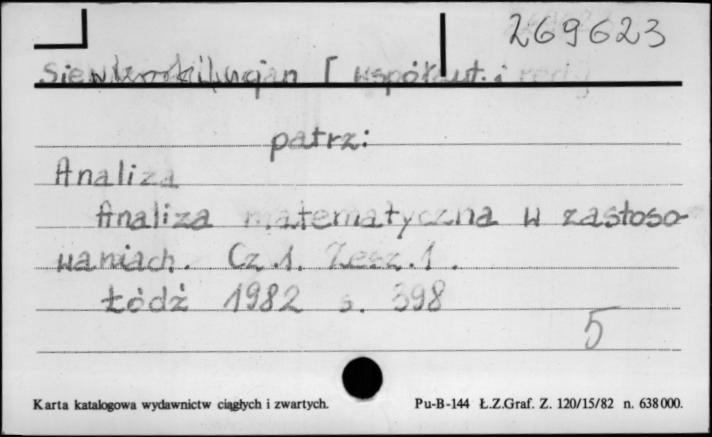 269623
Siewierski Lucjan [współaut. i red.]
patrz:
Analiza
Analiza matematyczna w zastoso-
waniach. Cz.1. Zesz.1.
Łódź 1982 s. 398
5
Karta katalogowa wydawnictw ciągłych i zwartych. Pu-B-144 Ł.Z.Graf. Z. 120/15/82 n. 638 000.